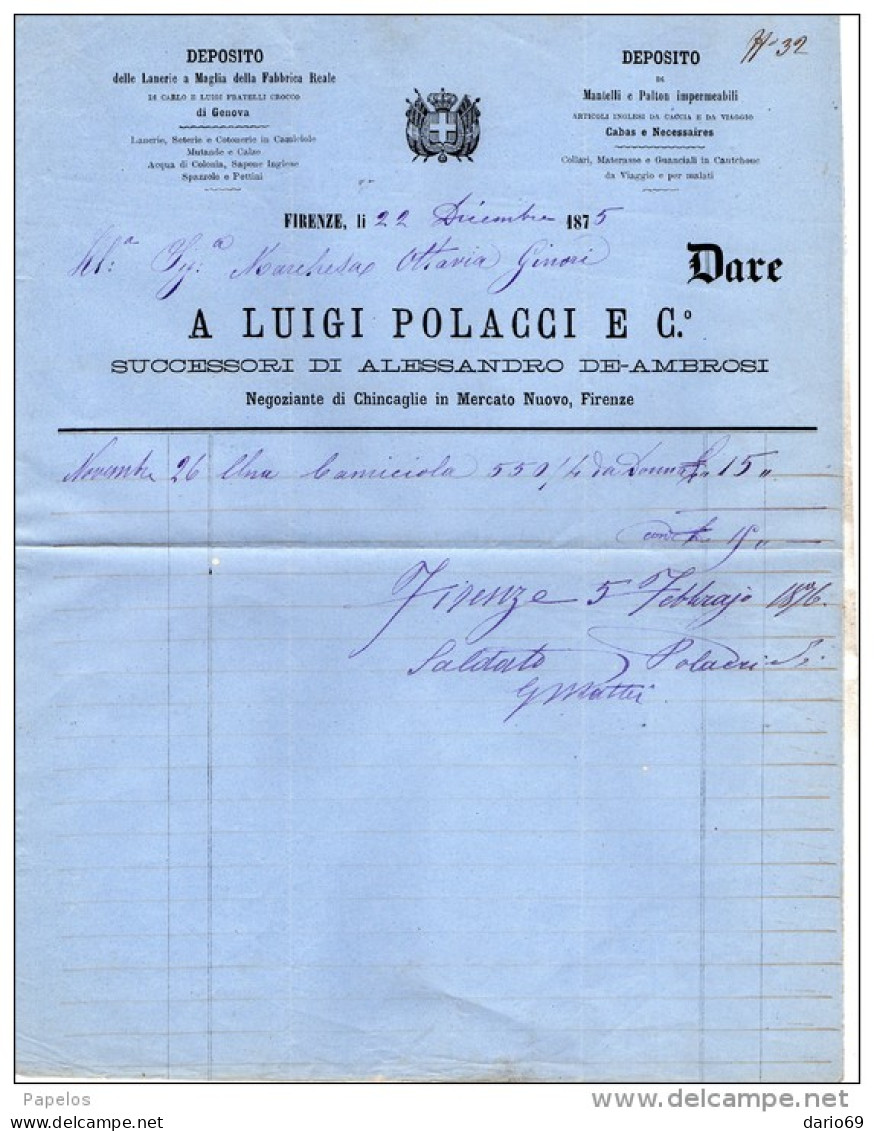 Nº 32
DEPOSITO
delle Lanerie a Maglia della Fabbrica Reale
DI CARLO E LUIGI FRATELLI CROCCO
di Genova
Lanerie, Seterie e Cotonerie in Camiciole
Mutande e Calze
Acqua di Colonia, Sapone Inglese
Spazzole e Pettini
DEPOSITO
DI
Mantelli e Palton impermeabili
ARTICOLI INGLESI DA CACCIA E DA VIAGGIO
Cabas e Necessaires
Collari, Materasse e Guanciali in Cautchouc
da Viaggio e per malati
FIRENZE, li 22 Dicembre 1875
Ill.a Sig.a Marchesa Ottavia Ginori
Dare
A LUIGI POLACCI E C.º
SUCCESSORI DI ALESSANDRO DE-AMBROSI
Negoziante di Chincaglie in Mercato Nuovo, Firenze
Novembre 26 Una Camiciola 550/4 da Donna £ 15 "
£ 15 "
Firenze 5 Febbrajo 1876.
Saldato Polacci
G Mattei
Papelos
delcampe.net
dario69